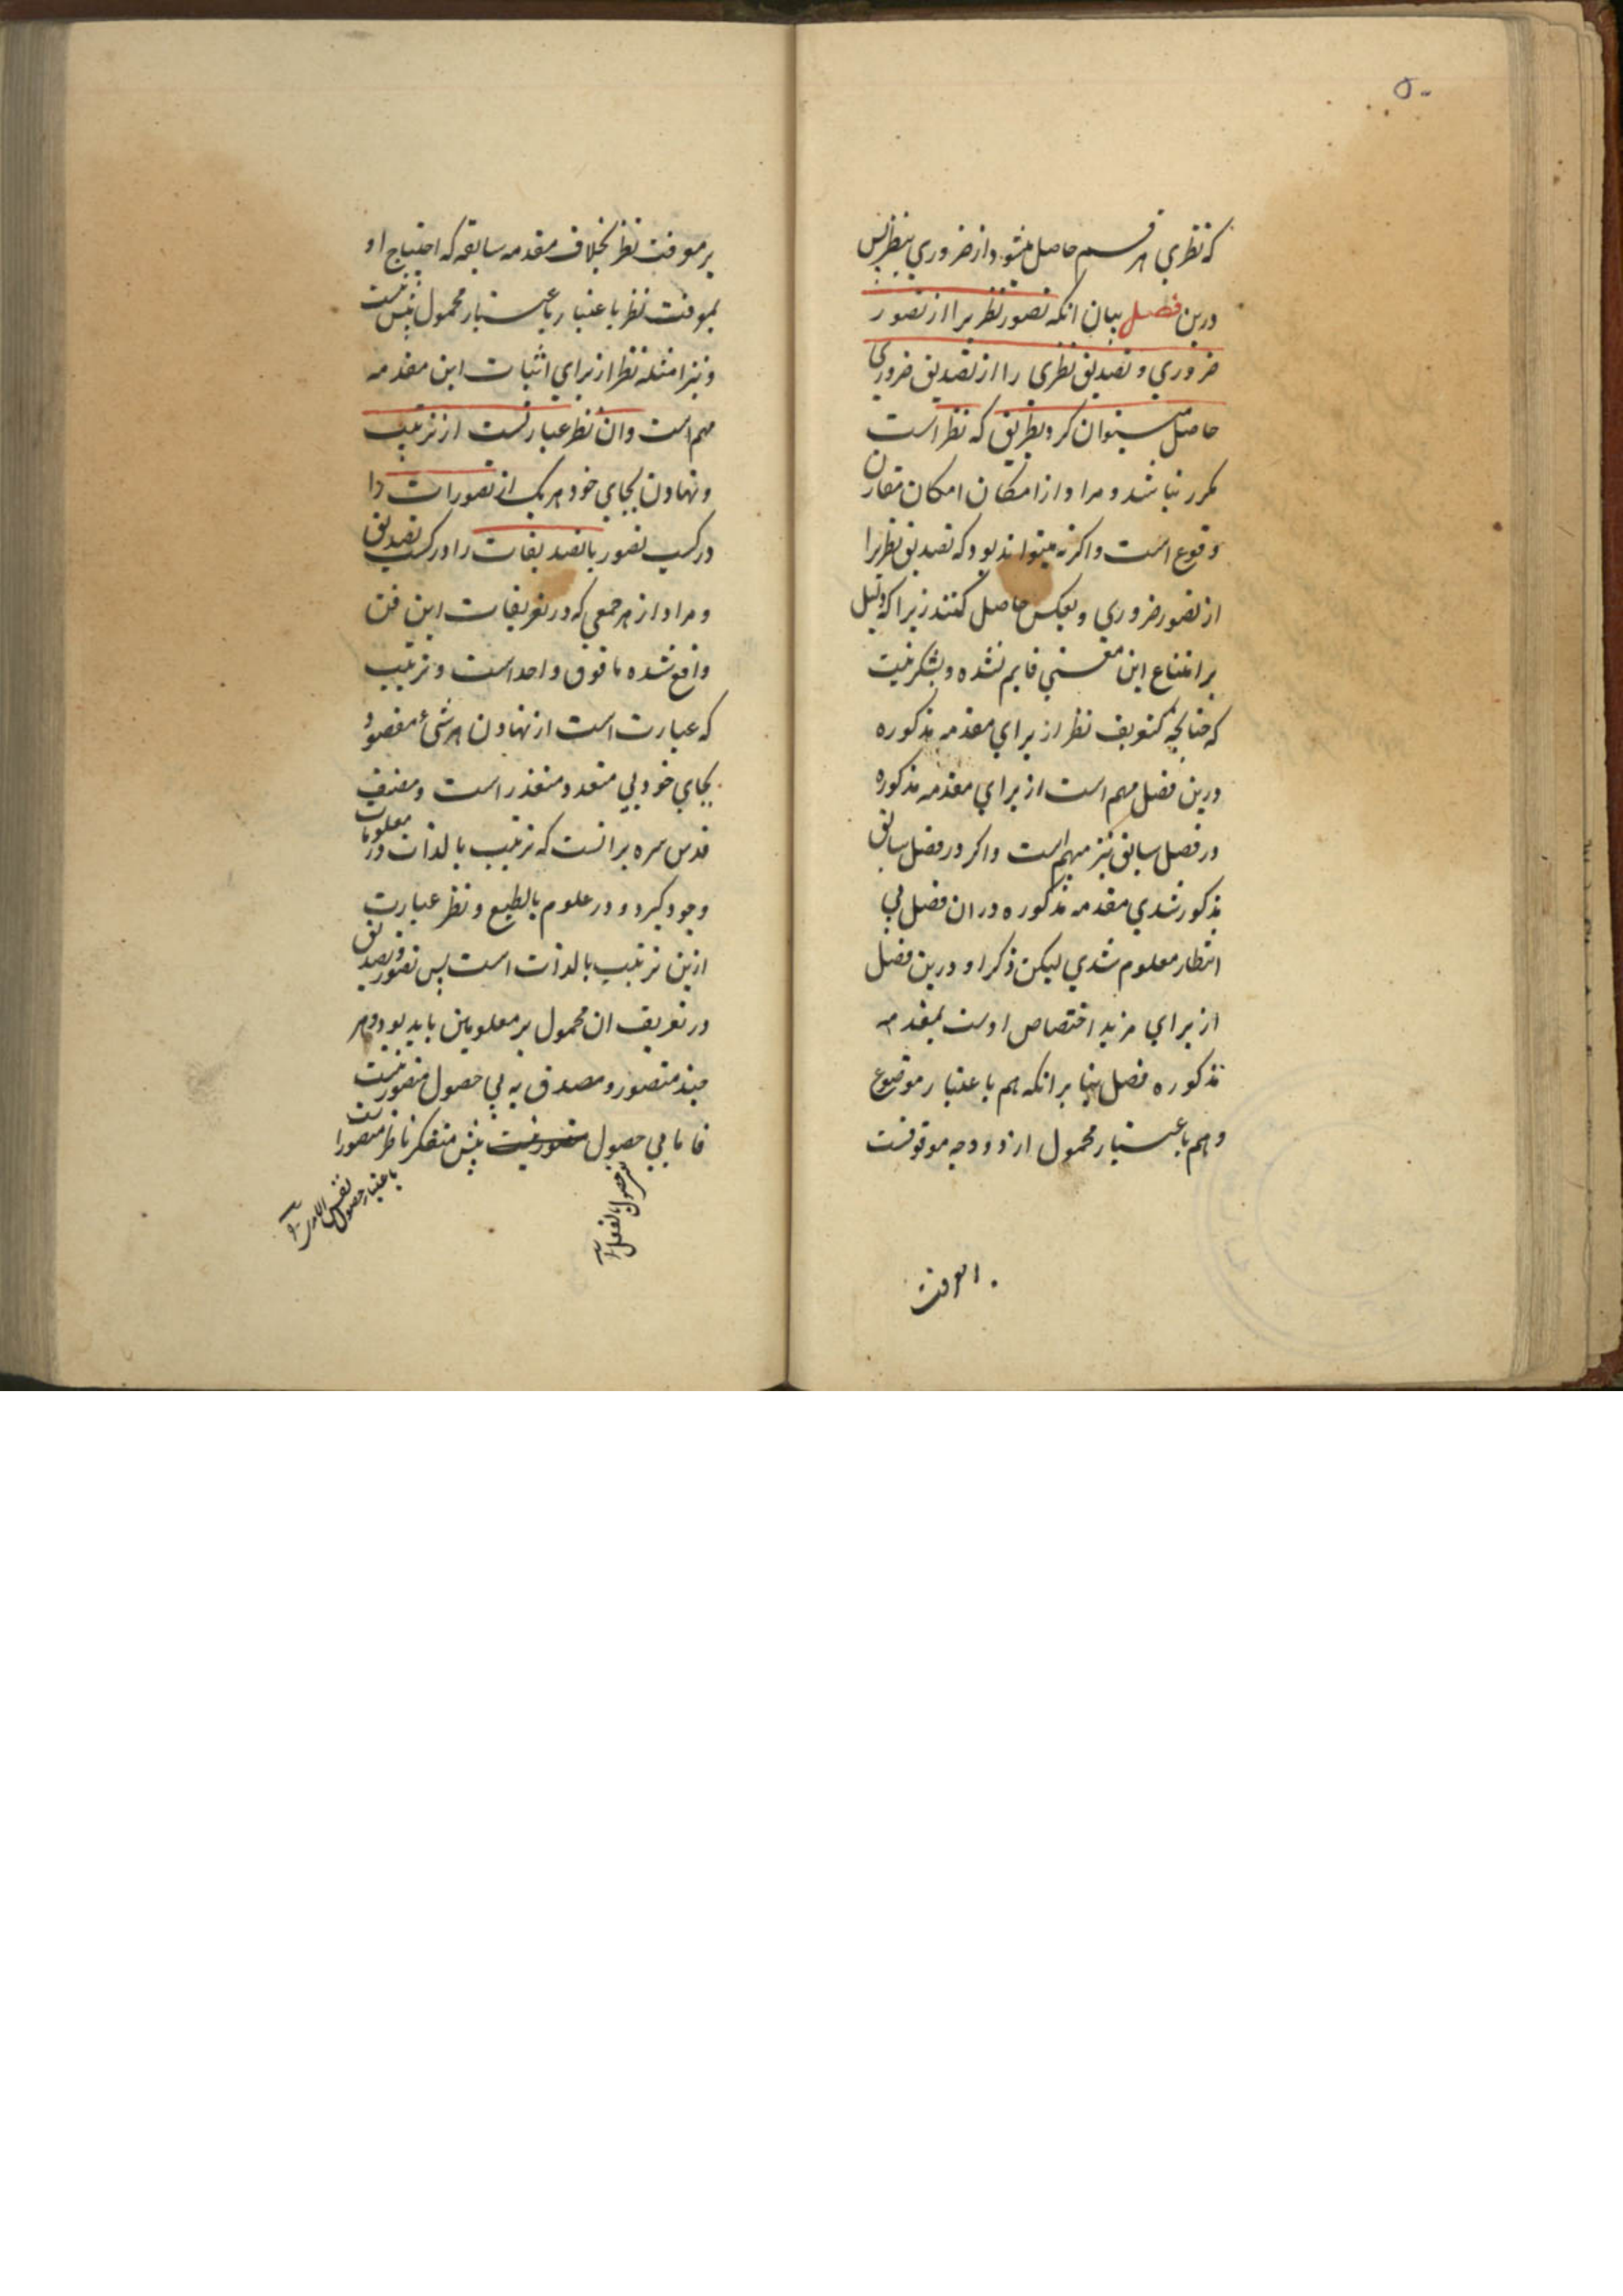 ۵۰
که نظری هر قسم حاصل میشود از ضروری بنظر پس
درین فصل بیان انکه تصور نظریرا از تصور
ضروری و تصدیق نظری را از تصدیق ضروری
حاصل میتوان کرد بطریق که نظر است
مکرر نباشد و مراد از امکان امکان مقارن
وقوع است و اگرنه میتواند بود که تصدیق نظریرا
از تصور ضروری و بعکس حاصل کنند زیرا که دلیل
بر امتناع این معنی قایم نشده و بشک نیست
که چنانچه تعریف نظر از برای مقدمه مذکوره
درین فصل مهم است از برای مقدمه مذکوره
در فصل سابق نیز مهم است و اگر در فصل سابق
مذکور شدی مقدمه مذکوره در ان فصل بی
انتظار معلوم شدی لیکن ذکر او درین فصل
از برای مزید اختصاص اوست بمقدمه
مذکوره فصل بنا بر انکه هم باعتبار موضوع
و هم باعتبار محمول از دو وجه موقوفست
بر معرفت نظر بخلاف مقدمه سابقه که احتیاج او
بمعرفت نظر باعتبار محمول بیش نیست
و نیز امثله نظر از برای اثبات این مقدمه
مهم است و ان نظر عبارتست از ترتیب
و نهادن بجای خود هر یک از تصورات را
در کسب تصور یا تصدیقات را در کسب تصدیق
و مراد از هر جمعی که در تعریفات این فن
واقع شده ما فوق واحد است و ترتیب
که عبارت است از نهادن هر شیء مقصود
بجای خود بی متعدد متعذر است و مصنف
قدس سره بر انست که ترتیب بالذات در معلومات
وجود گیرد و در علوم بالطبع و نظر عبارت
ازین ترتیب بالذات است پس تصور و تصدیق
در تعریف ان محمول بر معلومین باید بود و هر
چند متصور و مصدق به بی حصول متصور نیست
فاما بی حصول بیش متفکر ناظر متصور است